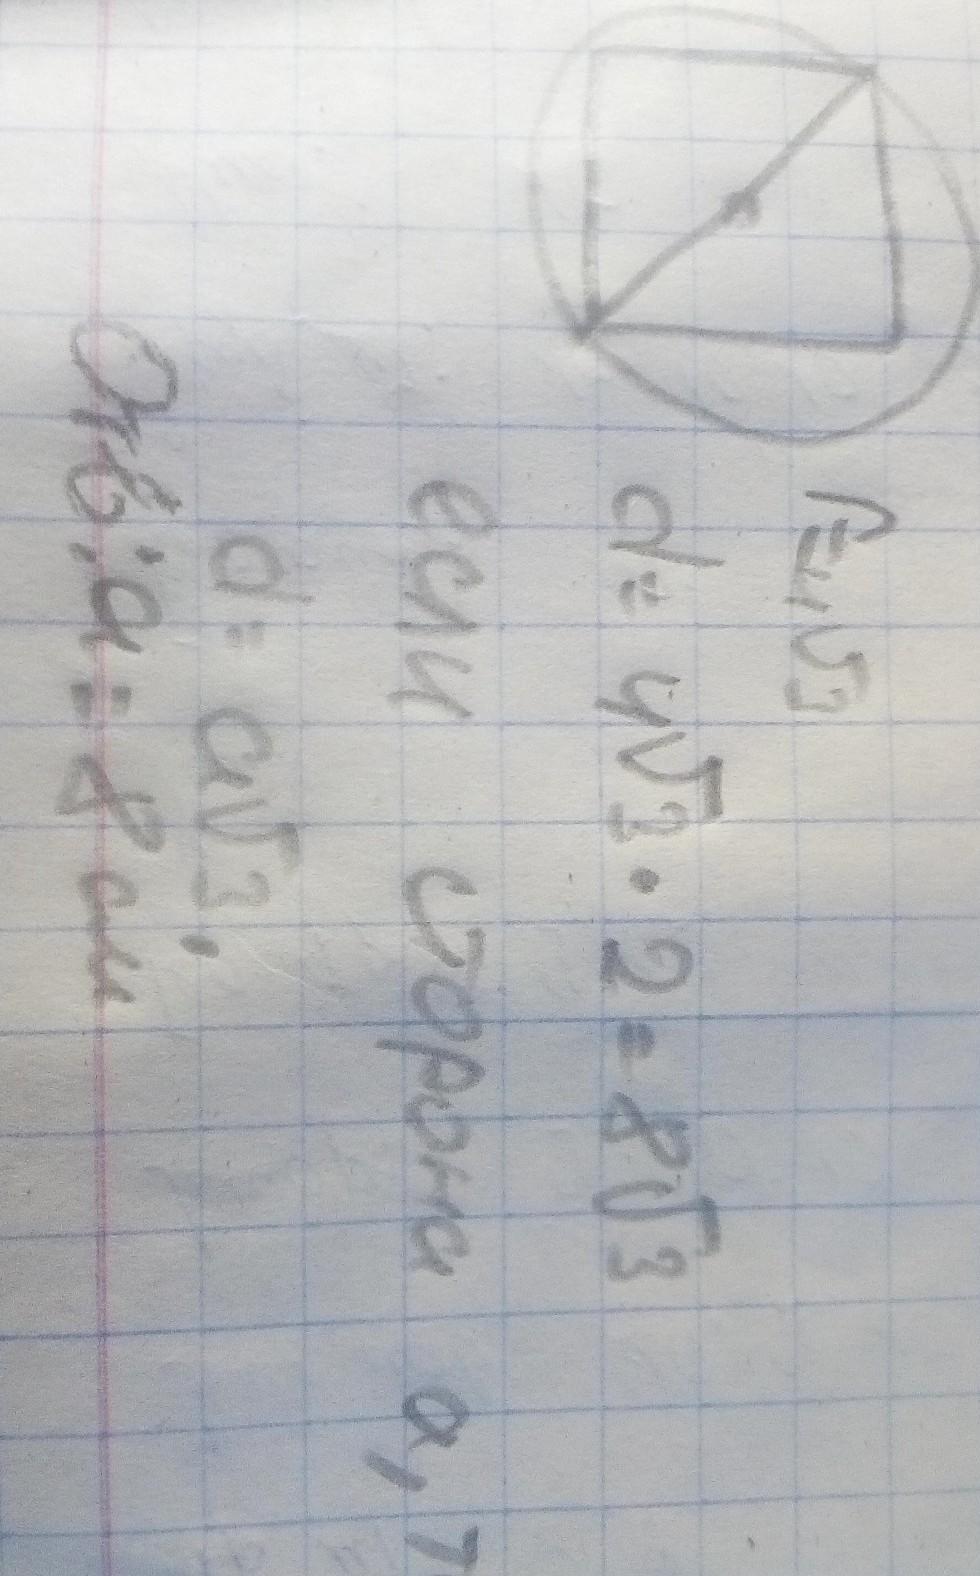 r=4√3
d=4√3·2=8√3
если сторона a, т
d=a√3.
Отв: a=8 см